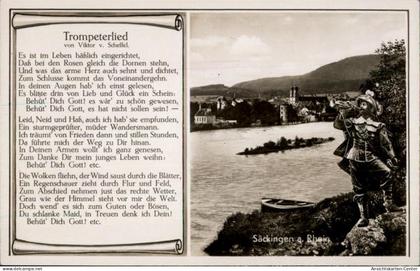 Trompeterlied
von Viktor v. Scheffel.
Es ist im Leben häßlich eingerichtet,
Daß bei den Rosen gleich die Dornen stehn,
Und was das arme Herz auch sehnt und dichtet,
Zum Schlusse kommt das Voneinandergehn.
In deinen Augen hab' ich einst gelesen,
Es blitzte drin von Lieb und Glück ein Schein:
Behüt' Dich Gott! es wär' zu schön gewesen,
Behüt' Dich Gott, es hat nicht sollen sein! —
Leid, Neid und Haß, auch ich hab' sie empfunden,
Ein sturmgeprüfter, müder Wandersmann.
Ich träumt' von Frieden dann und stillen Stunden,
Da führte mich der Weg zu Dir hinan.
In Deinen Armen wollt' ich ganz genesen,
Zum Danke Dir mein junges Leben weihn:
Behüt' Dich Gott! etc.
Die Wolken fliehn, der Wind saust durch die Blätter,
Ein Regenschauer zieht durch Flur und Feld,
Zum Abschied nehmen just das rechte Wetter,
Grau wie der Himmel steht vor mir die Welt.
Doch wend' es sich zum Guten oder Bösen,
Du schlanke Maid, in Treuen denk ich Dein!
Behüt' Dich Gott! etc.
Säckingen a. Rhein
www.ansichtskarten-center.de